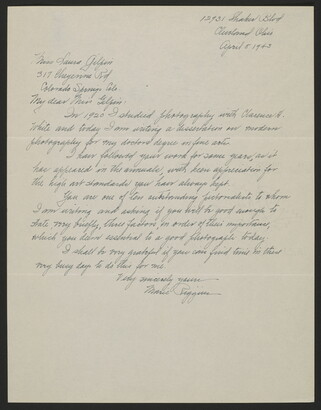 12931 Shaker Blvd
Cleveland Ohio
April 5 1943
Miss Laura Gilpin
317 Cheyenne Rd.
Colorado Springs Colo.
My dear Miss Gilpin:
In 1920 I studied photography with Clarence H.
White and today I am writing a dissertation on modern
photography for my doctors degree in fine arts.
I have followed your work for some years, as it
has appeared in the annuals, with keen appreciation for
the high art standards you have always kept.
You are one of ten outstanding pictorialists to whom
I am writing and asking if you will be good enough to
state very briefly, three factors, in order of their importance,
which you deem essential to a good photograph today.
I shall be very grateful if you can find time in this
very busy day to do this for me.
Very sincerely yours
Marie Riggins